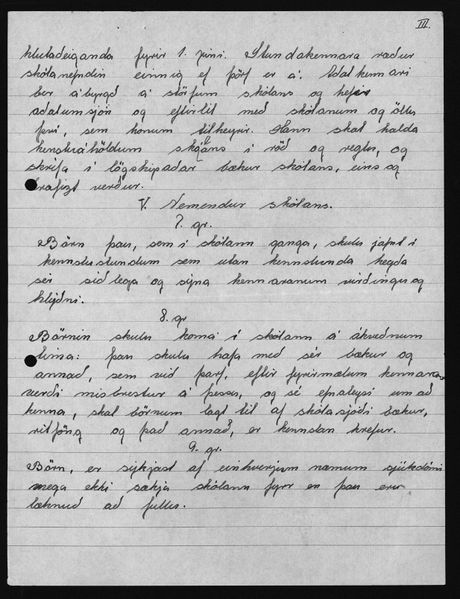 III.
hlutadeiganda fyrir 1. júní. Stundakennara ræður
skólanefndin einnig ef þörf er á. Aðalkennari
ber ábyrgð á störfum skólans og hefir
aðalumsjón og eftirlit með skólanum og öllu
því, sem honum tilheyrir. Hann skal halda
kensluáhöldum skólans í röð og reglu, og
skrifa í lögskipaðar bækur skólans, eins og
krafizt verður.
V. Nemendur skólans.
7. gr.
Börn þau, sem í skólann ganga, skulu jafnt í
kennslustundum sem utan kennslustunda hegða
sér siðlega og sýna kennaranum virðingu og
hlýðni.
8. gr
Börnin skulu koma í skólann á ákveðnum
tíma: þau skulu hafa með sér bækur og
annað, sem við þarf, eftir fyrirmælum kennara,
verði misbrestur á þessu, og sé efnaleysi um að
kenna, skal börnum lagt til af skólasjóði bækur,
ritföng og það annað, er kennslan krefur.
9. gr.
Börn, er sýkjast af einhverjum næmum sjúkdómi
mega ekki sækja skólann fyrr en þau eru
læknuð að fullu.